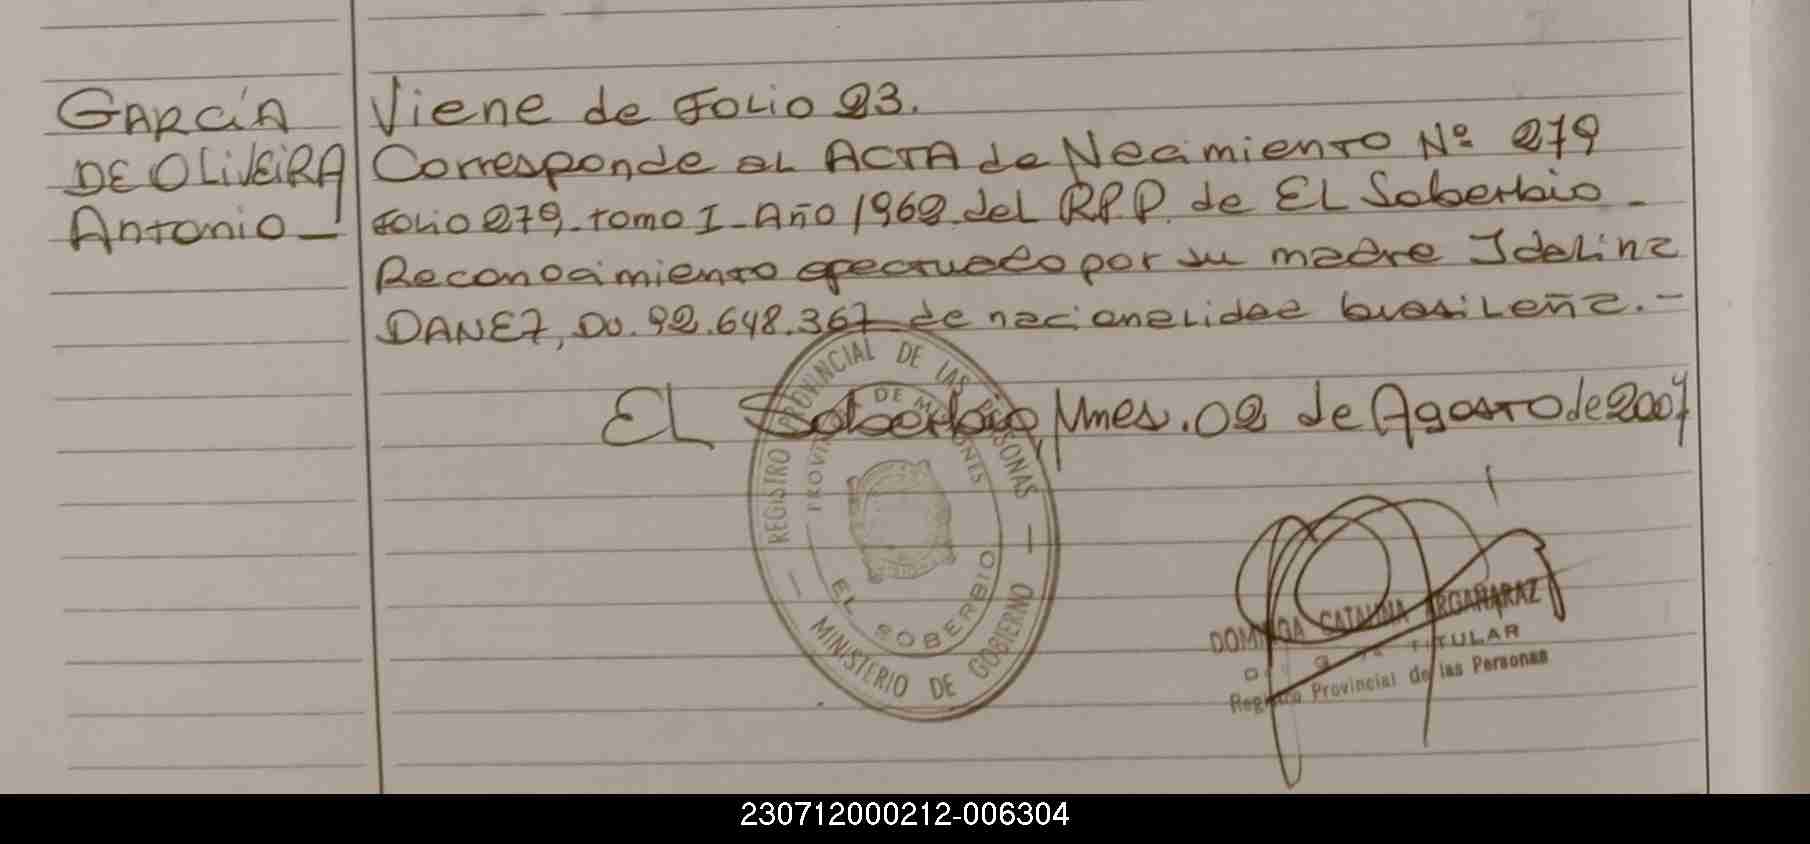 GARCíA
DE OLiVEiRA
Antonio_
Viene de Folio 23.
Corresponde al ACTA de Nacimiento Nº 279
Folio 279_tomo I_Año 1962 del R.P.P. de El Soberbio_
Reconocimiento efectuado por su madre Idelina
DANEZ, DU. 92.648.367 de nacionalidad brasileña.-
El Soberbio, Mnes. 02 de Agosto de 2007
REGISTRO PROVINCIAL DE LAS PERSONAS
PROVINCIA DE MISIONES
EL SOBERBIO
MINISTERIO DE GOBIERNO
DOMINGA CATALINA ARGAÑARAZ
TITULAR
Registro Provincial de las Personas
230712000212-006304